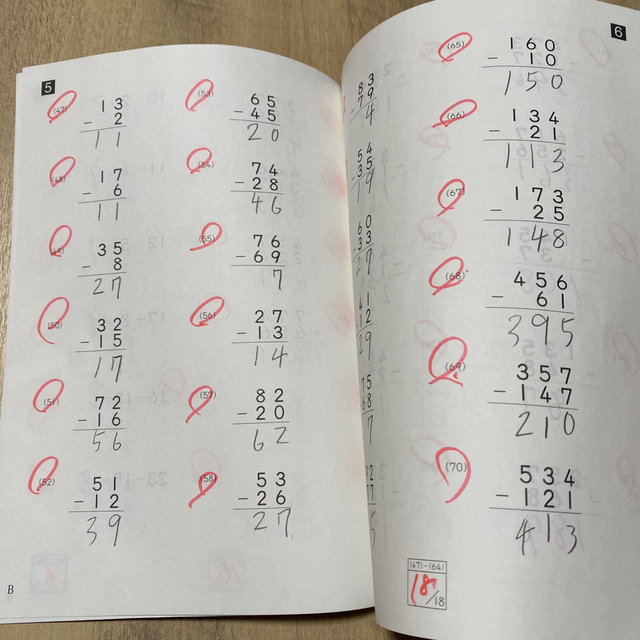 5
(47)
13
- 2
11
(48)
17
- 6
11
(49)
35
- 8
27
(50)
32
- 15
17
(51)
72
- 16
56
(52)
51
- 12
39
(53)
65
- 45
20
(54)
74
- 28
46
(55)
76
- 69
7
(56)
27
- 13
14
(57)
82
- 20
62
(58)
53
- 26
27
B
6
83
79
4
54
35
19
60
33
27
41
12
29
75
68
7
(65)
160
- 10
150
(66)
134
- 21
113
(67)
173
- 25
148
(68)
456
- 61
395
(69)
357
- 147
210
(70)
534
- 121
413
(47)-(64)
18/18